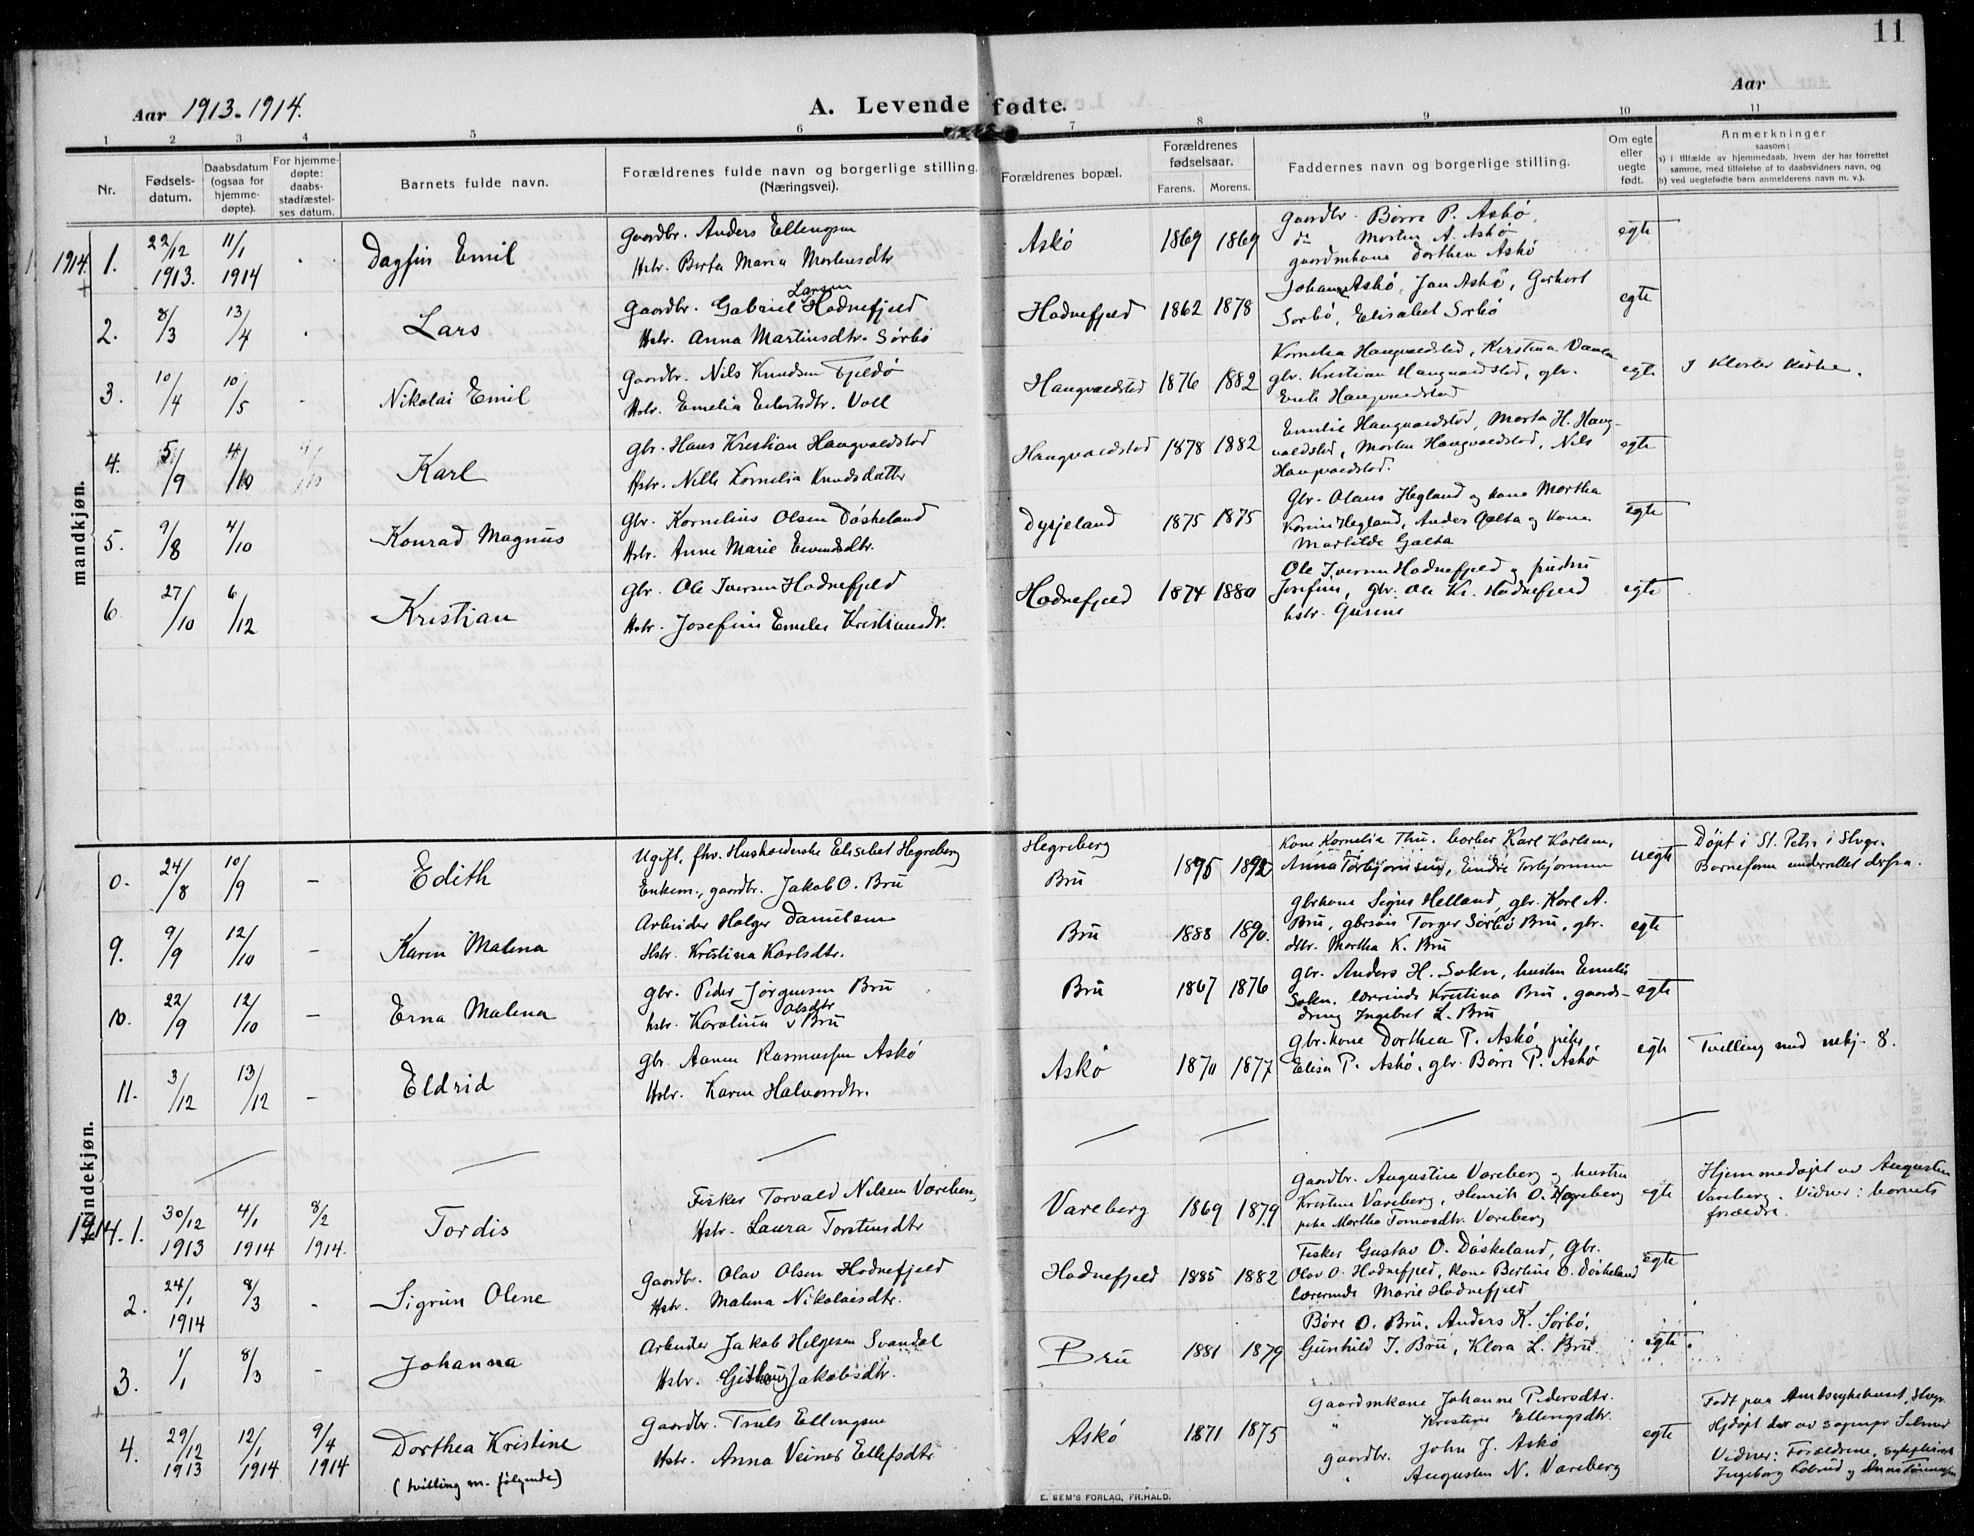 11
Aar 1913-1914.
A. Levende fødte.
Aar
1 2 3 4 5 6 7 8 9 10 11
Nr.
Fødsels-
datum.
Daabsdatum
(ogsaa for
hjemme-
døpte).
For hjemme-
døpte:
daabs-
stadfæstel-
ses datum.
Barnets fulde navn.
Forældrenes fulde navn og borgerlige stilling.
(Næringsvei).
Forældrenes bopæl.
Forældrenes
fødselsaar.
Farens. Morens.
Faddernes navn og borgerlige stilling.
Om egte
eller
uegte
født.
Anmerkninger
saasom:
a) i tilfælde av hjemmedaab, hvem der har forrettet
samme, med tilføielse af to daabsvidners navn, og
b) ved uegtefødte barn anmelderens navn m. v.).
mandkjøn.
1914. 1. 22/12 1913. 11/1 1914 Dagfin Emil
Gaardbr. Anders Ellingsen
Hstr. Berta Maria Mortensdtr
Askø 1869 1869
Gaardbr. Børre P. Askø,
do Morten A. Askø
gaardmkone Dorthea Askø
egte
2. 8/3 13/4 Lars
Gaardbr. Gabriel Larsen Hodnefjeld
Hstr. Anna Martinsdtr. Sørbø
Hodnefjeld 1862 1878
Johan Askø, Jan Askø, Gerhart
Sørbø, Elisabet Sørbø
egte
3. 10/4 10/5 Nikolai Emil
Gaardbr. Nils Knudsen Fjeldø
Hstr. Emelia Eilertsdtr. Voll
Haugvaldstad 1876 1882
Kornelia Haugvaldstad, Kerstina
gbr. Kristian Haugvaldstad, gbr.
Erik Haugvaldstad
egte
I Kloster kirke.
4. 5/9 4/10 Karl
Gbr. Hans Kristian Haugvaldstad
Hstr. Nille Kornelia Knudsdatter
Haugvaldstad 1878 1882
Emilie Haugvaldstad, Marta H. Haug-
valdstad, Morten Haugvaldstad, Nils
Haugvaldstad.
egte
5. 9/8 4/10 Konrad Magnus
Gbr. Kornelius Olsen Døskeland
Hstr. Anne Marie Eivendsdtr.
Dysjeland 1875 1875
Gbr. Olaus Hegland og kone Martha
Karine Hegland, Anders Galta og kone
Mathilde Galta
egte
6. 27/10 6/12 Kristian
Gbr. Ole Iversen Hodnefjeld
Hstr. Josefine Emelie Kristiansdr.
Hodnefjeld 1874 1880
Ole Iversen Hodnefjeld og
Josefine, gbr. Ole Kr. Hodnefjeld
hstr. Gurine
egte
kvindekjøn.
0. 24/8 10/9 – Edith
Ugift, fhv. Husholderske Elisabet Hegreberg
Enkem., gaardbr. Jakob O. Bru
Hegreberg
Bru 1895 1892
Kone Kornelia Thu, barber Karl Karlsen,
Anna Torbjørnsen, Endre Torbjørnsen
uegte
Døpt i St. Petri i Stvgr.
Barneforn underrettet derfra.
9. 9/9 12/10 – Karen Malena
Arbeider Holger Danielsen
Hstr. Kristina Karlsdtr.
Bru 1888 1890.
gbrkone Signe Helland, gbr. Karl A.
Bru, gbrsøn Torger Sørbø Bru, gbr.
dtr. Martha K. Bru
egte
10. 22/9 12/10 – Erna Malena
Gbr. Peder Jørgensen Bru
hstr. Karolina Olsdtr Bru
Bru 1867 1876
Gbr. Anders H. Sokn, hustru Emelie
Sokn. lærerinde Kristina Bru, gaards-
dreng Ingebret L. Bru
egte
11. 3/12 13/12 – Eldrid
Gbr. Aanen Rasmussen Askø
Hstr. Karen Halvorsdtr.
Askø 1870 1877
Gbr.kone Dorthea P. Askø, pike
Elisa P. Askø, gbr Børre P. Askø
egte
Tvilling med mkj. 8.
1914. 1. 30/12 1913 4/1 1914 8/2 1914. Tordis
Fisker Torvald Nilsen Vareberg
Hstr. Laura Torstensdtr
Vareberg 1869 1879
Gaardbr. Augustin Vareberg og hustru
Kristine Vareberg, Henrik O. Hegreberg
pike Martha Tomasdtr. Vareberg
egte
Hjemmedøpt av Augusten
Vareberg. Vidner: barnets
forældre.
2. 24/1 1914 8/3 - Sigrun Olene
Gaardbr. Olav Olsen Hodnefjeld
Hstr. Malena Nikolaisdtr.
Hodnefjeld 1885 1882
Fisker Gustav O. Døskeland, Gbr.
Olav O. Hodnefjeld, kone Bertine O. Døskeland
lærerinde Marie Hodnefjeld
egte
3. 1/1 8/3 - Johanna
Arbeider Jakob Helgesen Svandal
Hstr. Gitlaug Jakobsdtr.
Bru 1881 1879
Børe O. Bru, Anders K. Sørbø,
Gunhild J. Bru, Klara L. Bru.
egte.
4. 29/12 1913 12/1 1914 9/4 1914 Dorthea Kristine
(tvilling m. følgende)
Gaardbr. Truls Ellingsen
Hstr. Anna Veines Ellefsdtr
Askø 1871 1875
Gaardmkone Johanne Pedersdtr.
" Kristine Ellingsdtr.
gaardbr. John J. Askø
" Augusten N. Vareberg
egte
Født paa Amtssykehuset, Stvgr.
Hjdøpt der av sognepr Selmer
Vidner: Forældrene, sykepleierske
Ingeborg Kolsrud og
E. SEM'S FORLAG, FR.HALD.